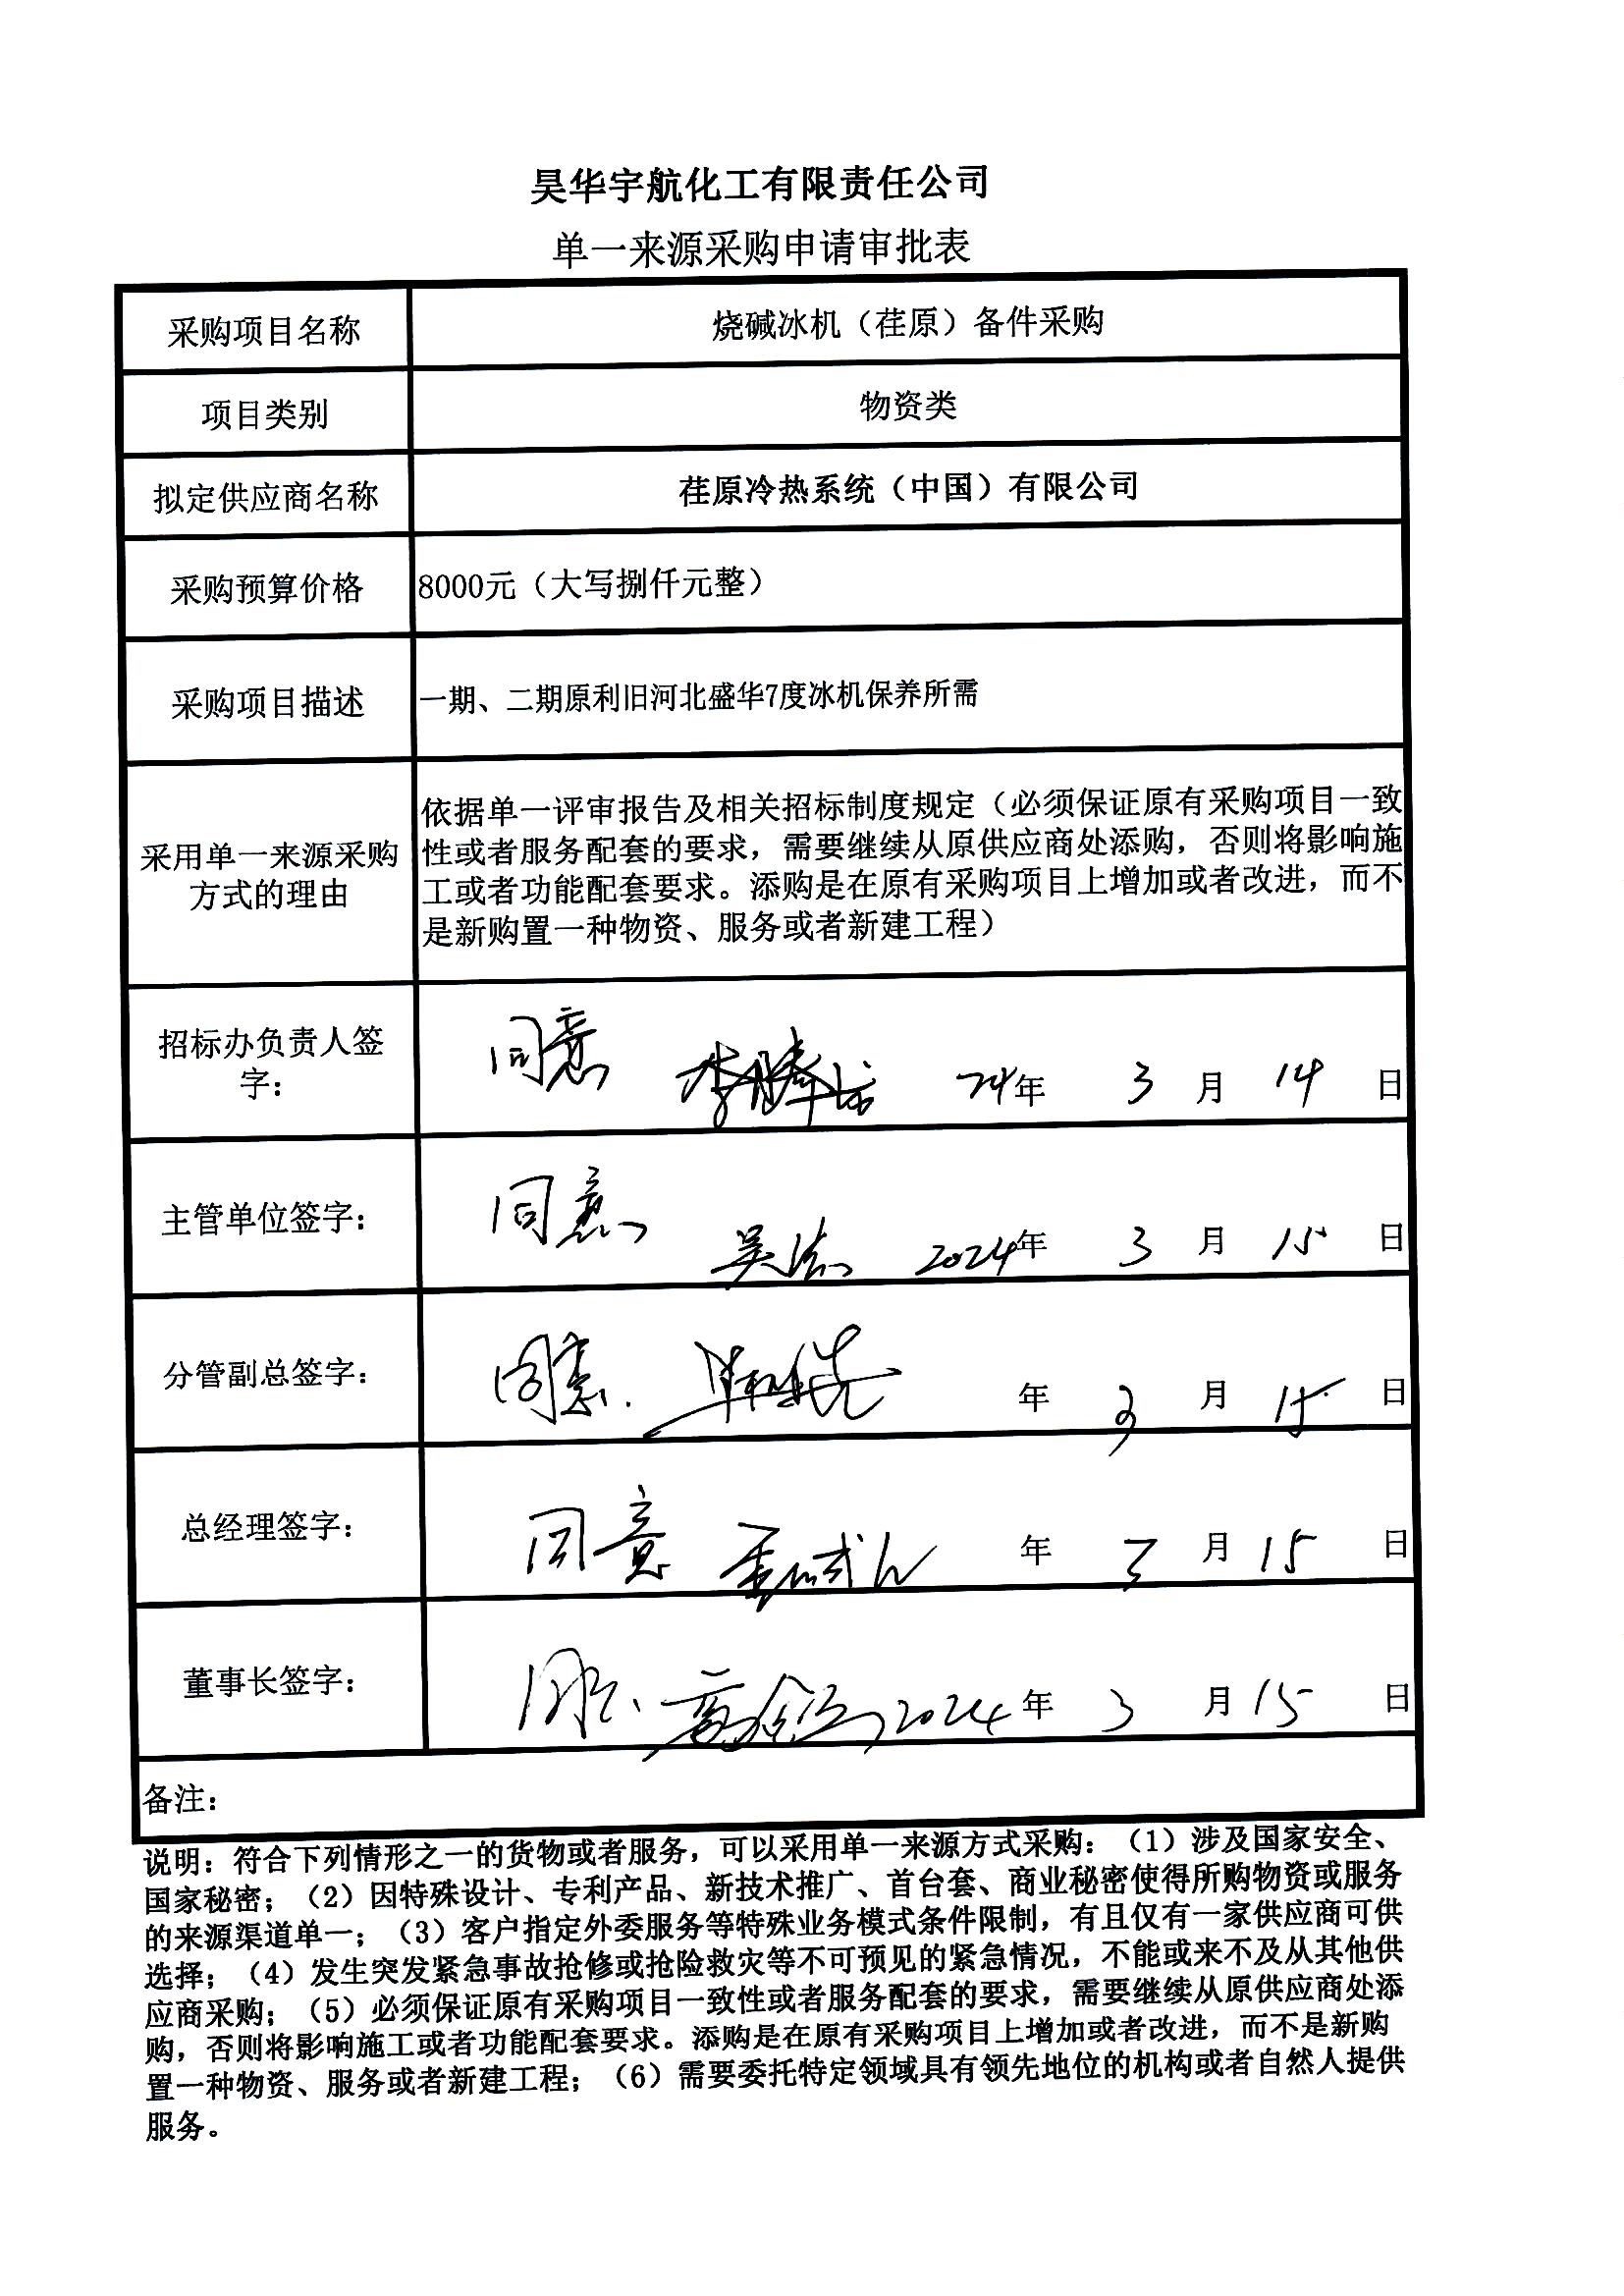 昊华宇航化工有限责任公司
单一来源采购申请审批表
采购项目名称
烧碱冰机（荏原）备件采购
项目类别
物资类
拟定供应商名称
荏原冷热系统（中国）有限公司
采购预算价格
8000元（大写捌仟元整）
采购项目描述
一期、二期原利旧河北盛华7度冰机保养所需
采用单一来源采购
方式的理由
依据单一评审报告及相关招标制度规定（必须保证原有采购项目一致
性或者服务配套的要求，需要继续从原供应商处添购，否则将影响施
工或者功能配套要求。添购是在原有采购项目上增加或者改进，而不
是新购置一种物资、服务或者新建工程）
招标办负责人签
字：
同意 年 3 月 14 日
主管单位签字：
同意 2024年 3 月 15 日
分管副总签字：
同意. 年 3 月 15 日
总经理签字：
同意 年 3 月 15 日
董事长签字：
2024年 3 月 15 日
备注：
说明：符合下列情形之一的货物或者服务，可以采用单一来源方式采购：（1）涉及国家安全、
国家秘密；（2）因特殊设计、专利产品、新技术推广、首台套、商业秘密使得所购物资或服务
的来源渠道单一；（3）客户指定外委服务等特殊业务模式条件限制，有且仅有一家供应商可供
选择；（4）发生突发紧急事故抢修或抢险救灾等不可预见的紧急情况，不能或来不及从其他供
应商采购；（5）必须保证原有采购项目一致性或者服务配套的要求，需要继续从原供应商处添
购，否则将影响施工或者功能配套要求。添购是在原有采购项目上增加或者改进，而不是新购
置一种物资、服务或者新建工程；（6）需要委托特定领域具有领先地位的机构或者自然人提供
服务。